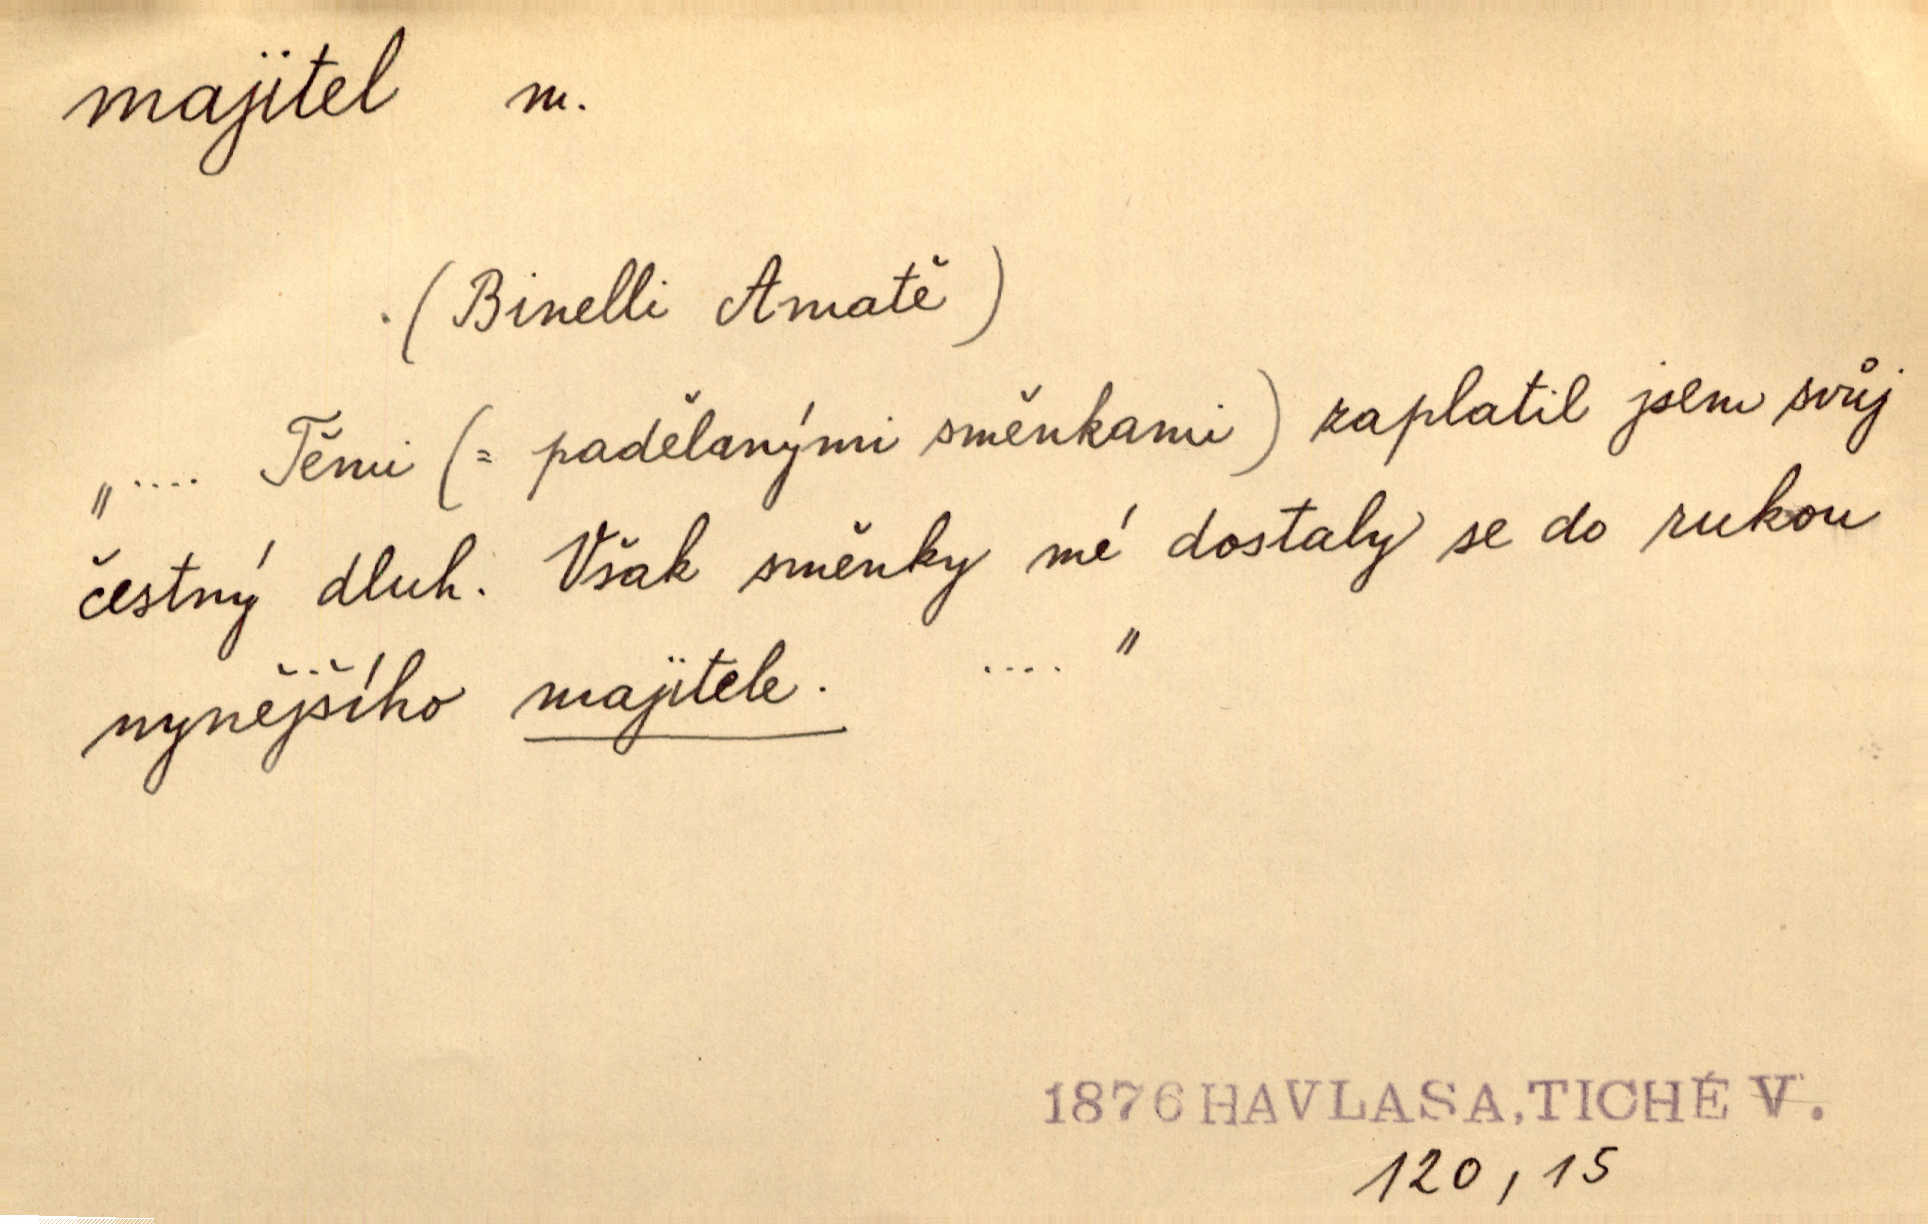 majitel m.
(Binelli Amatě)
„.... Těmi (= padělanými směnkami) zaplatil jsem svůj
čestný dluh. Však směnky mé dostaly se do rukou
nynějšího majitele. .... "
1876 HAVLASA, TICHÉ V.
120, 15